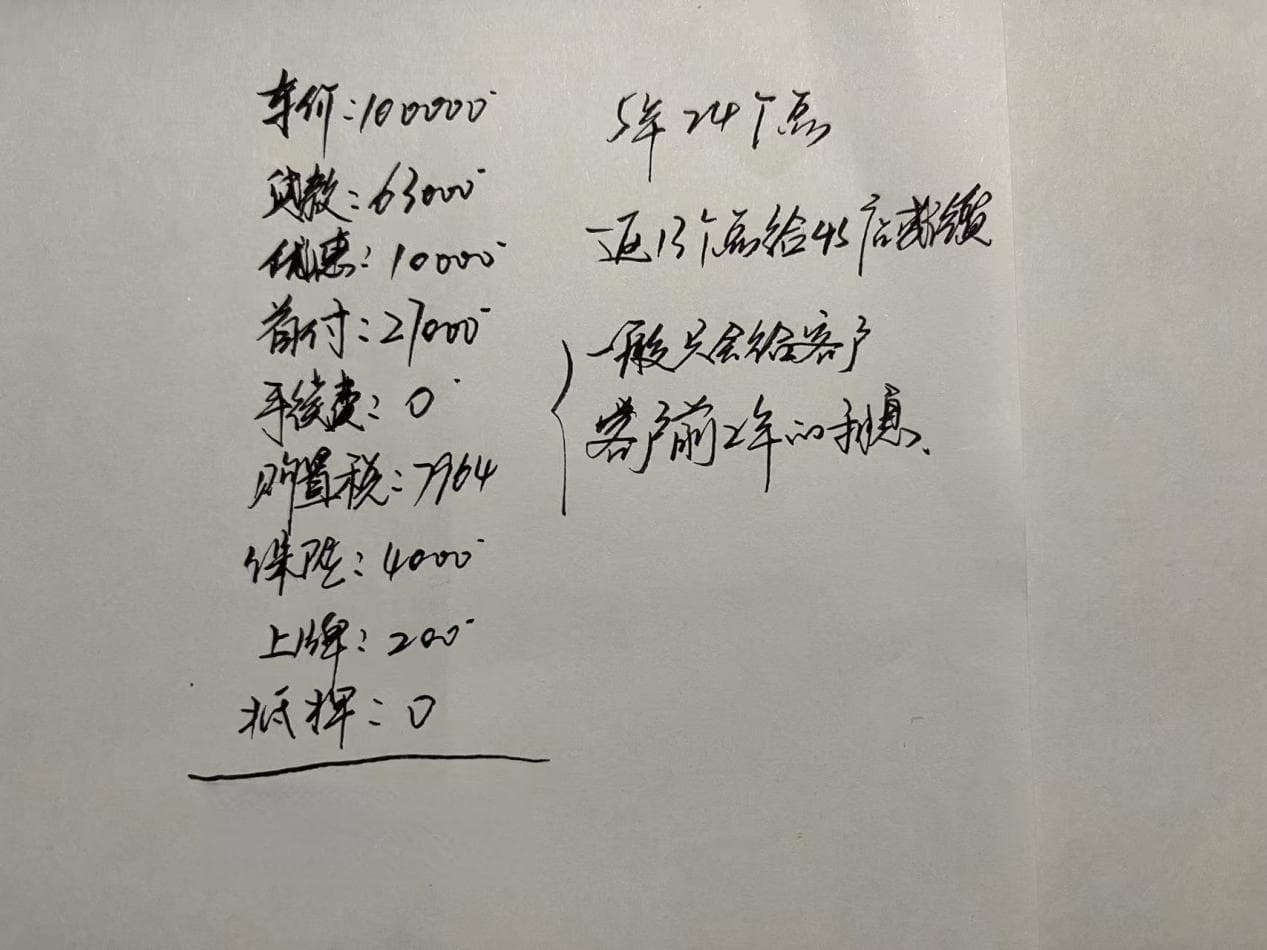 车价:100000
贷款:63000
优惠:10000
首付:27000
手续费:0
购置税:7964
保险:4000
上牌:200
抵押:0
5年24个点
返13个点给4S店或经销
一般只会给客户
客户前2年的利息、